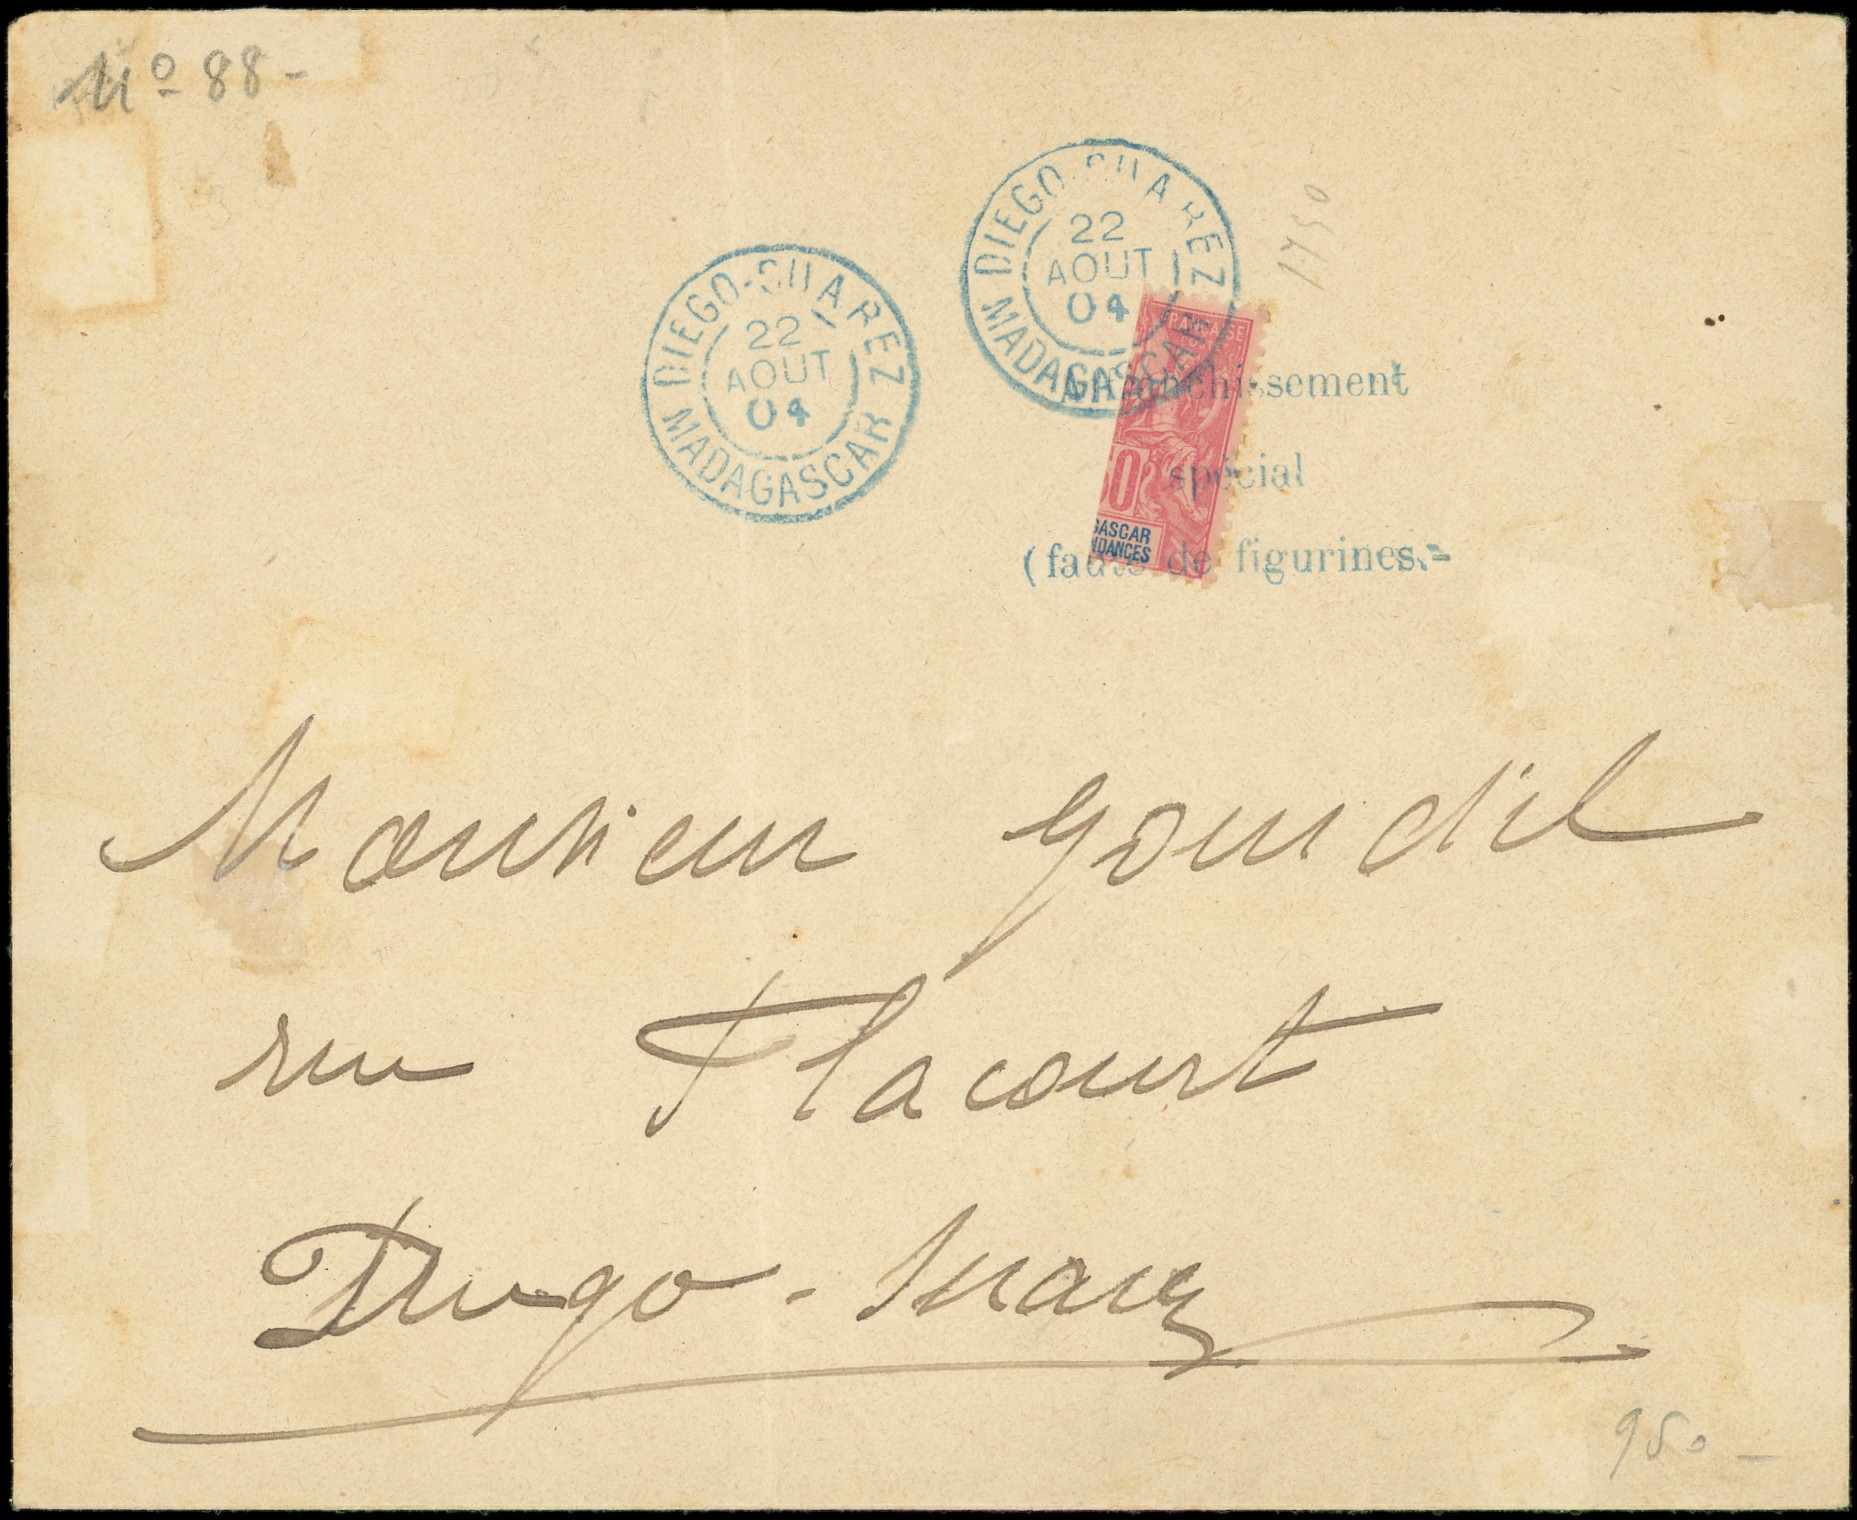 Nº 88-
DIEGO-SUAREZ
22
AOUT
04
MADAGASCAR
DIEGO-SUAREZ
22
AOUT
04
MADAGASCAR
1750
Affranchissement
spécial
(faute de figurines.=
50
GASCAR
NDANCES
Monsieur Gourdil
rue Flacourt
Diego-Suarez
950-